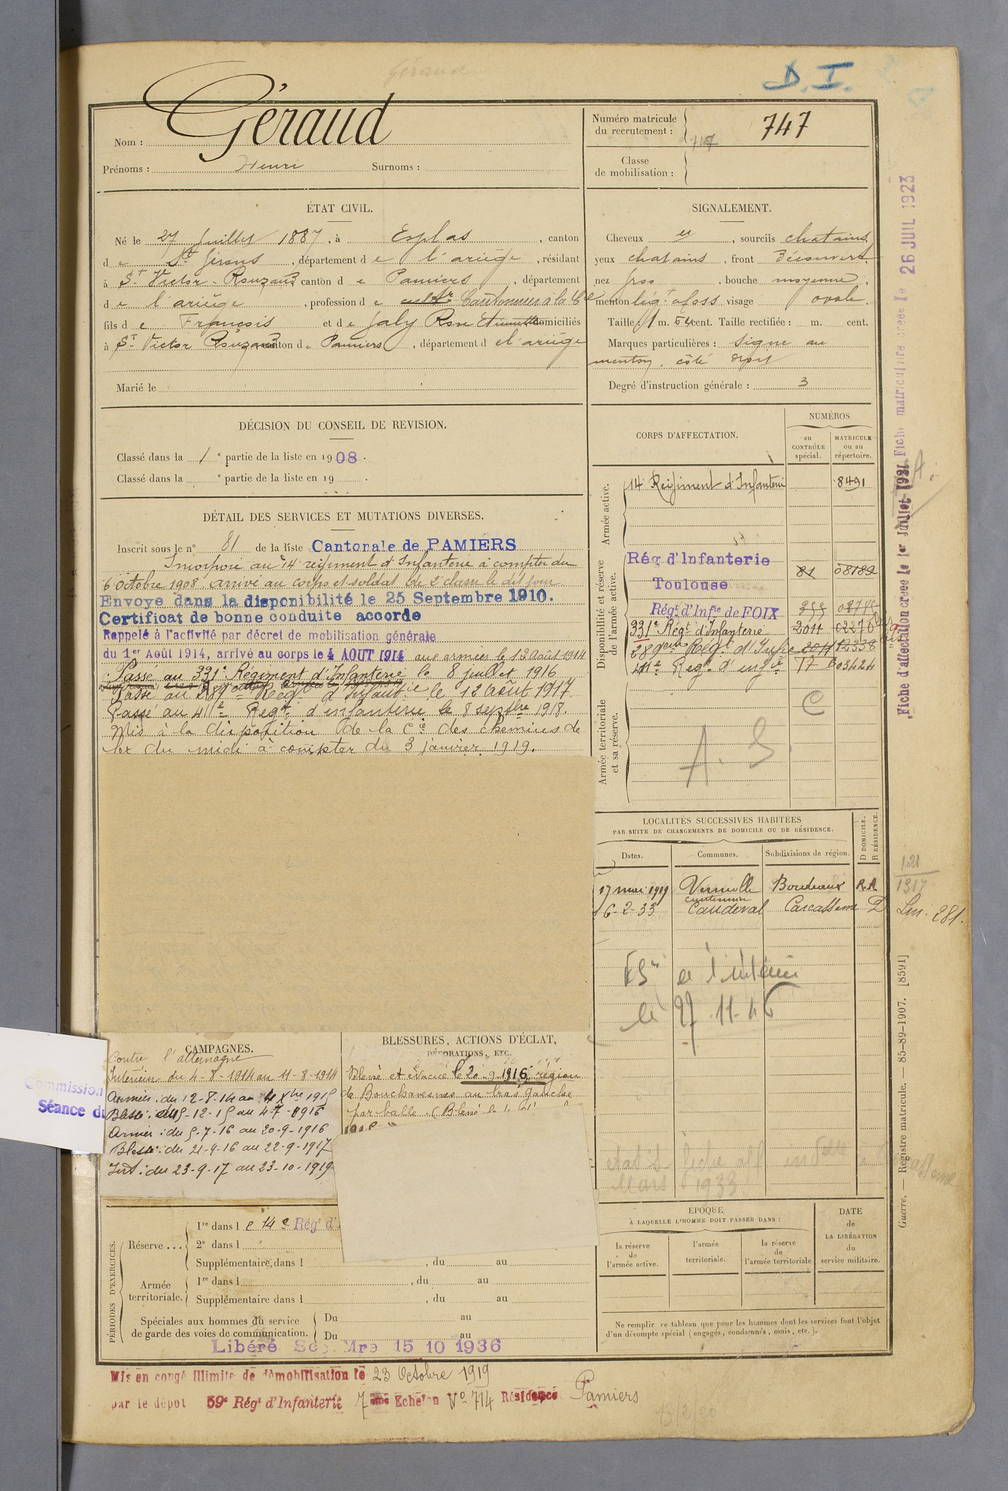 D. I.
Nom : Géraud
Prénoms : Henri Surnoms :
Numéro matricule du recrutement : 747
Classe de mobilisation :
ÉTAT CIVIL.
Né le 27 Juillet 1887, à Esplas, canton
de St Girons, département de l'ariège, résidant
à St Victor-Rouzaud canton de Pamiers, département
de l'ariège, profession de Cantonnier à la
fils de François et de domiciliés
à St Victor Rouzaud canton de Pamiers, département de l'ariège
Marié le
SIGNALEMENT.
Cheveux et, sourcils chatains
yeux chatains, front découvert
nez gros, bouche moyenne
menton visage ovale
Taille : 1 m. cent. Taille rectifiée : m. cent.
Marques particulières : signe au
menton, côté
Degré d'instruction générale : 3
DÉCISION DU CONSEIL DE REVISION.
Classé dans la 1e partie de la liste en 1908.
Classé dans la e partie de la liste en 19 .
DÉTAIL DES SERVICES ET MUTATIONS DIVERSES.
Inscrit sous le n° 81 de la liste Cantonale de PAMIERS
Incorporé au 14 régiment d'Infanterie à compter du
6 Octobre 1908, arrivé au corps et soldat de 2 classe le dit jour
Envoyé dans la disponibilité le 25 Septembre 1910.
Certificat de bonne conduite accordé
Rappelé à l'activité par décret de mobilisation générale
du 1er Août 1914, arrivé au corps le 4 AOUT 1914 aux armées le 12 août 1914
Passé au 331e Régiment d'Infanterie le 8 juillet 1916
Passé au 289e Régt d'Infanterie le 12 août 1917.
Passé au 411e Regt d'infanterie le 8 septbre 1918.
Mis à la disposition de la Cie des chemins de
fer du midi à compter du 3 janvier 1919.
CORPS D'AFFECTATION.
NUMÉROS
au CONTRÔLE spécial.
MATRICULE ou au répertoire.
Armée active.
14 Régiment d'Infanterie 8491
Disponibilité et réserve de l'armée active.
Rég. d'Infanterie
Toulouse 81 08189
Régt d'Infie de FOIX
331e Régt d'Infanterie 2011 02276
289eme Régt d'Infie 2011 12338
411e Regt d'infie 03424
Armée territoriale et sa réserve.
C
A. S
LOCALITÉS SUCCESSIVES HABITÉES
PAR SUITE DE CHANGEMENTS DE DOMICILE OU DE RÉSIDENCE.
Dates. Communes. Subdivisions de région. D DOMICILE. R RÉSIDENCE.
17 mai 1919 Verniolle Bordeaux R.A
cantonnier
16-2-33 Caudeval Carcassonne D
le 27-11-46
Mars 1933
CAMPAGNES.
Contre l'allemagne
Intérieur du 4-8-1914 au 11-8-1914
Armées : du 12-8-14 au 4 Xbre 1915
Blessé : du 5-12-15 au 4-7-1916
Armées : du 5-7-16 au 20-9-1916
Blessé : du 21-9-16 au 22-9-1917
Int : du 23-9-17 au 23-10-1919
BLESSURES, ACTIONS D'ÉCLAT,
DÉCORATIONS, ETC.
Blessé et évacué le 20-9-1916, région
de Bouchavesnes au bras gauche
par balle. (Blessé le
Commission
Séance du
PÉRIODES D'EXERCICES.
Réserve ...
1re dans le 14e Régt d'
2e dans l
Supplémentaire, dans l , du au
Armée territoriale.
1re dans l , du au
Supplémentaire dans l , du au
Spéciales aux hommes du service de garde des voies de communication.
Du au
Du au
Libéré Mre 15 10 1936
ÉPOQUE
À LAQUELLE L'HOMME DOIT PASSER DANS :
la réserve de l'armée active.
l'armée territoriale.
la réserve de l'armée territoriale
DATE de LA LIBÉRATION du service militaire.
Ne remplir ce tableau que pour les hommes dont les services font l'objet
d'un décompte spécial (engagés, condamnés, omis, etc.).
Mis en congé illimité de démobilisation le 23 Octobre 1919
par le dépot 59e Régt d'Infanterie 7ème Echelon No 714 Résidence Pamiers
Fiche matriculaire créée le 26 JUIL 1923
Fiche d'affectation créée le 1er Juillet 1931
Guerre. — Registre matricule. — 85-89-1907. [8591]